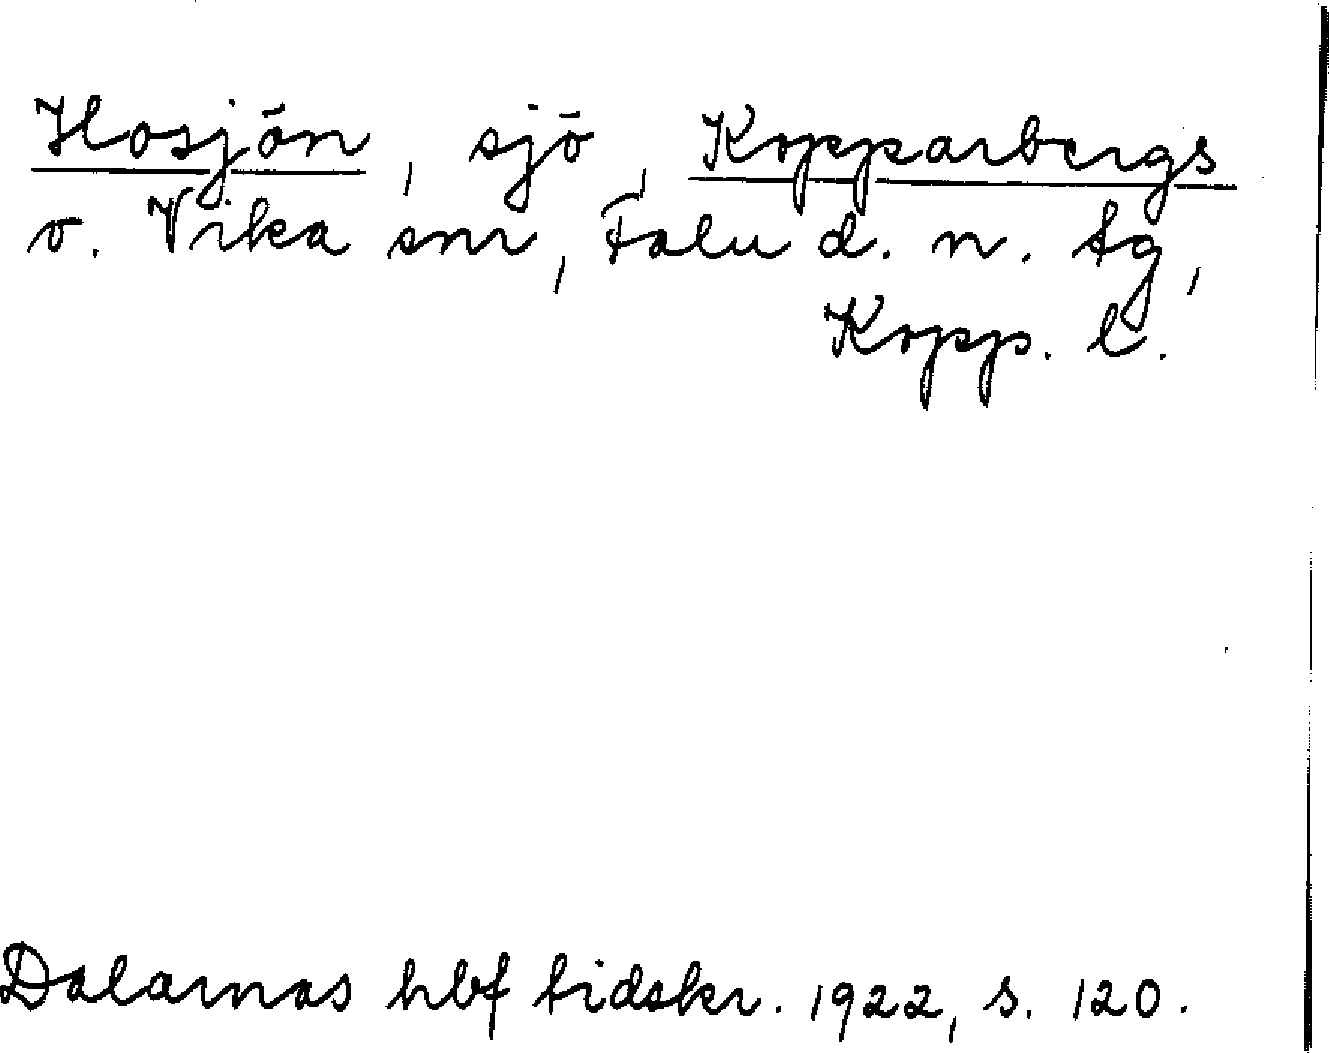 Hosjön, sjö, Kopparbergs
o. Vika snr, Falu d. n. tg,
Kopp. l.
Dalarnas hbf tidskr. 1922, s. 120.